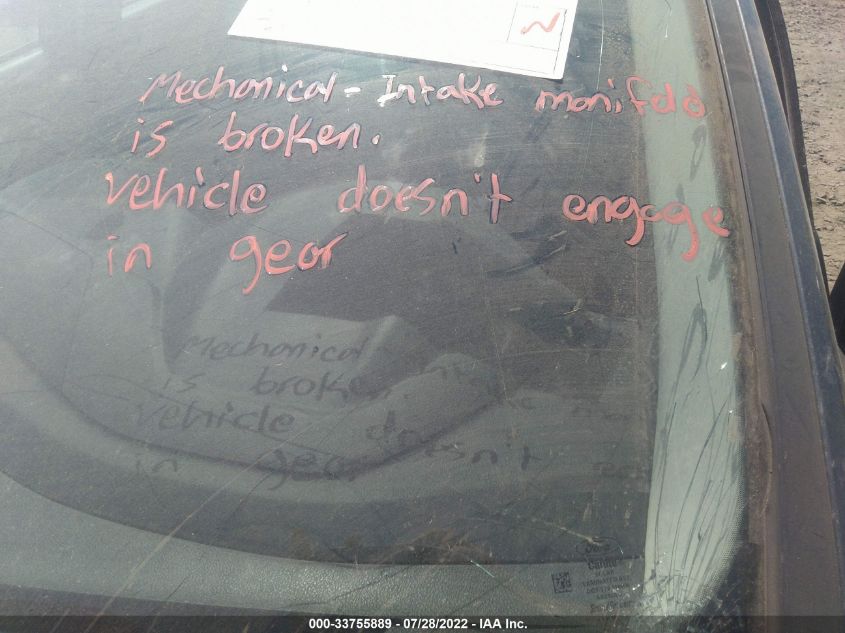 N
Mechanical - Intake manifold
is broken.
vehicle doesn't engage
in gear
Mechanical
is broken.
vehicle doesn't
in gear
Ford
Carlite
000-33755889 / 07/28/2022 - IAA Inc.